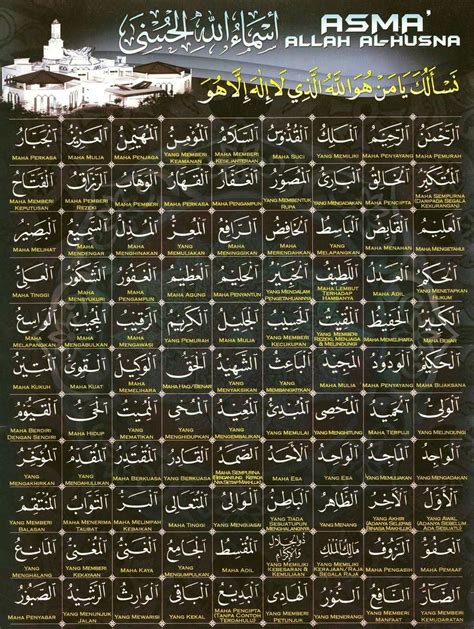 أسماء الله الحسنى
ASMA'
ALLAH AL-HUSNA
نَسْأَلُكَ يَا مَنْ هُوَ اللهُ الَّذِي لَا إِلٰهَ إِلَّا هُوَ
الرحمن الرحيم الملك القدوس السلام المؤمن المهيمن العزيز الجبار
MAHA PEMURAH MAHA PENYAYANG YANG MEMILIKI MAHA SUCI YANG MEMBERI KESEJAHTERAAN YANG MEMBERI KEAMANAN MAHA PENJAGA MAHA MULIA MAHA PERKASA
المتكبر الخالق البارئ المصور الغفار القهار الوهاب الرزاق الفتاح
MAHA SEMPURNA (DARIPADA SEGALA KEKURANGAN) MAHA PENCIPTA YANG MENGADAKAN YANG MEMBENTUK RUPA MAHA PENGAMPUN MAHA PERKASA MAHA PEMBERI MAHA PEMBERI REZEKI MAHA MEMBERI KEPUTUSAN
العليم القابض الباسط الخافض الرافع المعز المذل السميع البصير
MAHA MENGETAHUI YANG MELAPANGKAN YANG MENINGGIKAN YANG MEMULIAKAN YANG MENGHINAKAN MAHA MENDENGAR MAHA MELIHAT
الحكم العدل اللطيف الخبير الحليم العظيم الغفور الشكور العلي
YANG MENETAPKAN HUKUM MAHA ADIL MAHA LEMBUT TERHADAP HAMBANYA YANG MENDALAM PENGETAHUANNYA MAHA PENYANTUN MAHA AGUNG MAHA PENGAMPUN MAHA MENSYUKURI MAHA TINGGI
الكبير الحفيظ المقيت الحسيب الجليل الكريم الرقيب المجيب الواسع
MAHA BESAR MAHA MELINDUNGI YANG MEMBERI REZEKI, MENJAGA & MELINDUNGI MAHA MULIA YANG PEMURAH MAHA MENGAWASI MAHA MENGABULKAN MAHA MELAPANGKAN
الحكيم الودود المجيد الباعث الشهيد الحق الوكيل القوي المتين
MAHA BIJAKSANA MAHA PENYAYANG MAHA MULIA YANG MEMBANGKITKAN YANG MENYAKSIKAN MAHA HAQ/BENAR MAHA MEMELIHARA MAHA KUAT MAHA KUKUH
الولي الحميد المحصي المبدئ المعيد المحيي المميت الحي القيوم
YANG MELINDUNGI MAHA TERPUJI YANG MENGHITUNG YANG MEMULAI YANG MENGEMBALIKAN YANG MENGHIDUPKAN YANG MEMATIKAN MAHA HIDUP MAHA BERDIRI DENGAN SENDIRI
الواجد الماجد الواحد الأحد الصمد القادر المقتدر المقدم المؤخر
MAHA MULIA MAHA ESA MAHA ESA YANG BERKUASA MAHA BERKUASA YANG MENDAHULUKAN YANG MENGAKHIRKAN
الأول الآخر الظاهر الباطن الوالي المتعالي البر التواب المنتقم
YANG NYATA YANG MENGUASAI MAHA TINGGI MAHA MELIMPAH KEBAIKAN MAHA MENERIMA TAUBAT YANG MEMBERI BALASAN
العفو الرؤوف مالك الملك ذو الجلال والإكرام المقسط الجامع الغني المغني المانع
MAHA PEMAAF MAHA PENGASIH RAJA SEGALA RAJA YANG MEMILIKI KEBESARAN & KEMULIAAN MAHA ADIL YANG MENGUMPULKAN MAHA KAYA YANG MEMBERI KEKAYAAN YANG MENGHALANG
الضار النافع النور الهادي البديع الباقي الوارث الرشيد الصبور
YANG MEMBERI BAHAYA YANG MEMBERI MANFAAT YANG MEMBERI CAHAYA YANG MEMBERI PETUNJUK MAHA PENCIPTA (TANPA CONTOH TERDAHULU) YANG KEKAL YANG MEWARISI YANG MENUNJUK JALAN MAHA PENYABAR